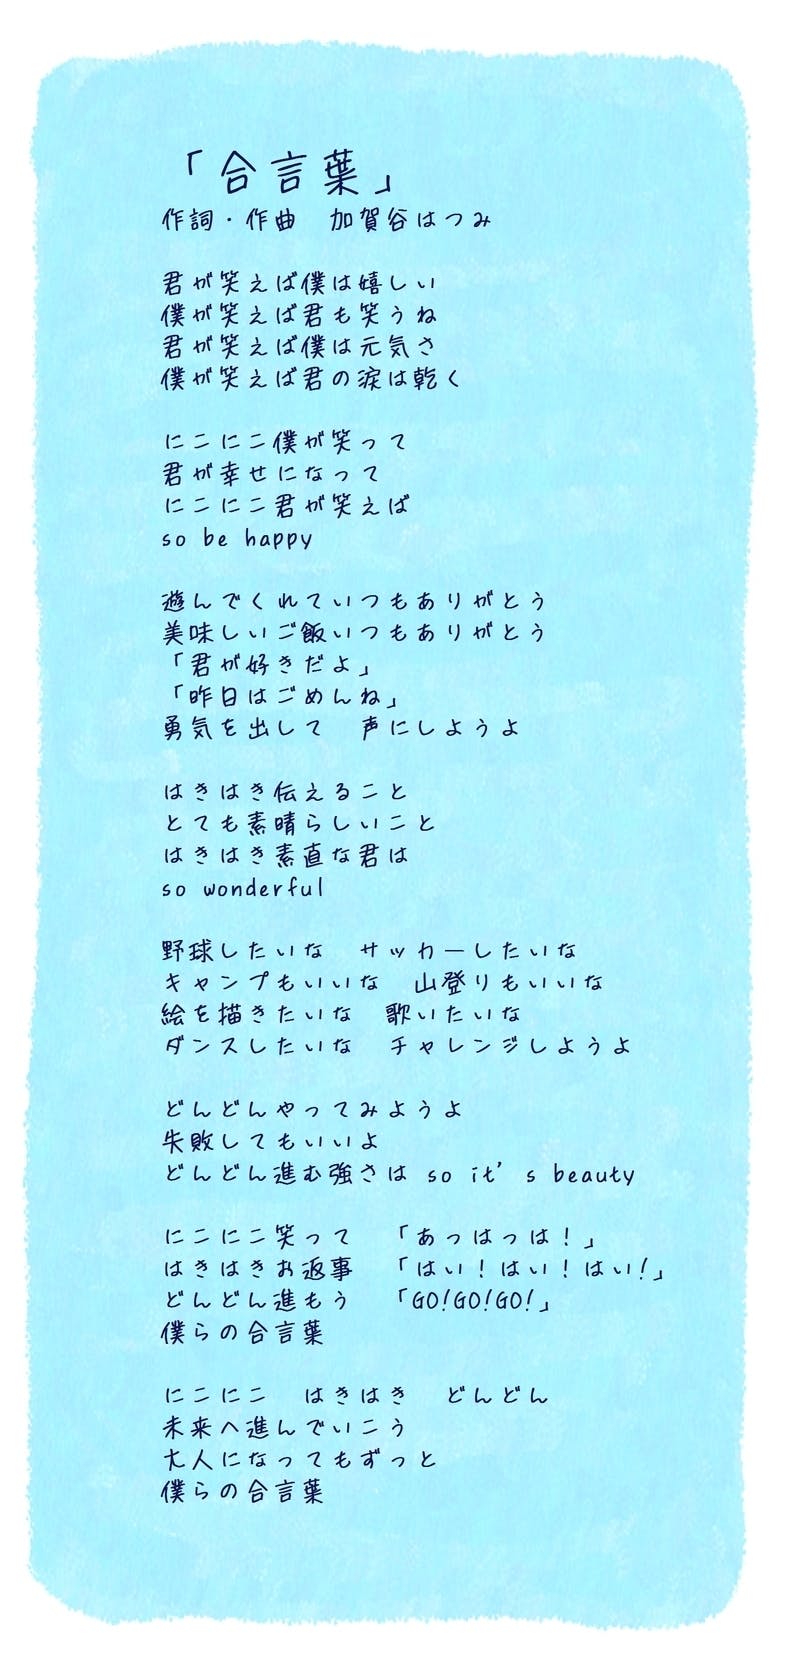 「合言葉」
作詞・作曲　加賀谷はつみ
君が笑えば僕は嬉しい
僕が笑えば君も笑うね
君が笑えば僕は元気さ
僕が笑えば君の涙は乾く
にこにこ僕が笑って
君が幸せになって
にこにこ君が笑えば
so be happy
遊んでくれていつもありがとう
美味しいご飯いつもありがとう
「君が好きだよ」
「昨日はごめんね」
勇気を出して　声にしようよ
はきはき伝えること
とても素晴らしいこと
はきはき素直な君は
so wonderful
野球したいな　サッカーしたいな
キャンプもいいな　山登りもいいな
絵を描きたいな　歌いたいな
ダンスしたいな　チャレンジしようよ
どんどんやってみようよ
失敗してもいいよ
どんどん進む強さは so it's beauty
にこにこ笑って　「あっはっは！」
はきはきお返事　「はい！はい！はい！」
どんどん進もう　「GO!GO!GO!」
僕らの合言葉
にこにこ　はきはき　どんどん
未来へ進んでいこう
大人になってもずっと
僕らの合言葉